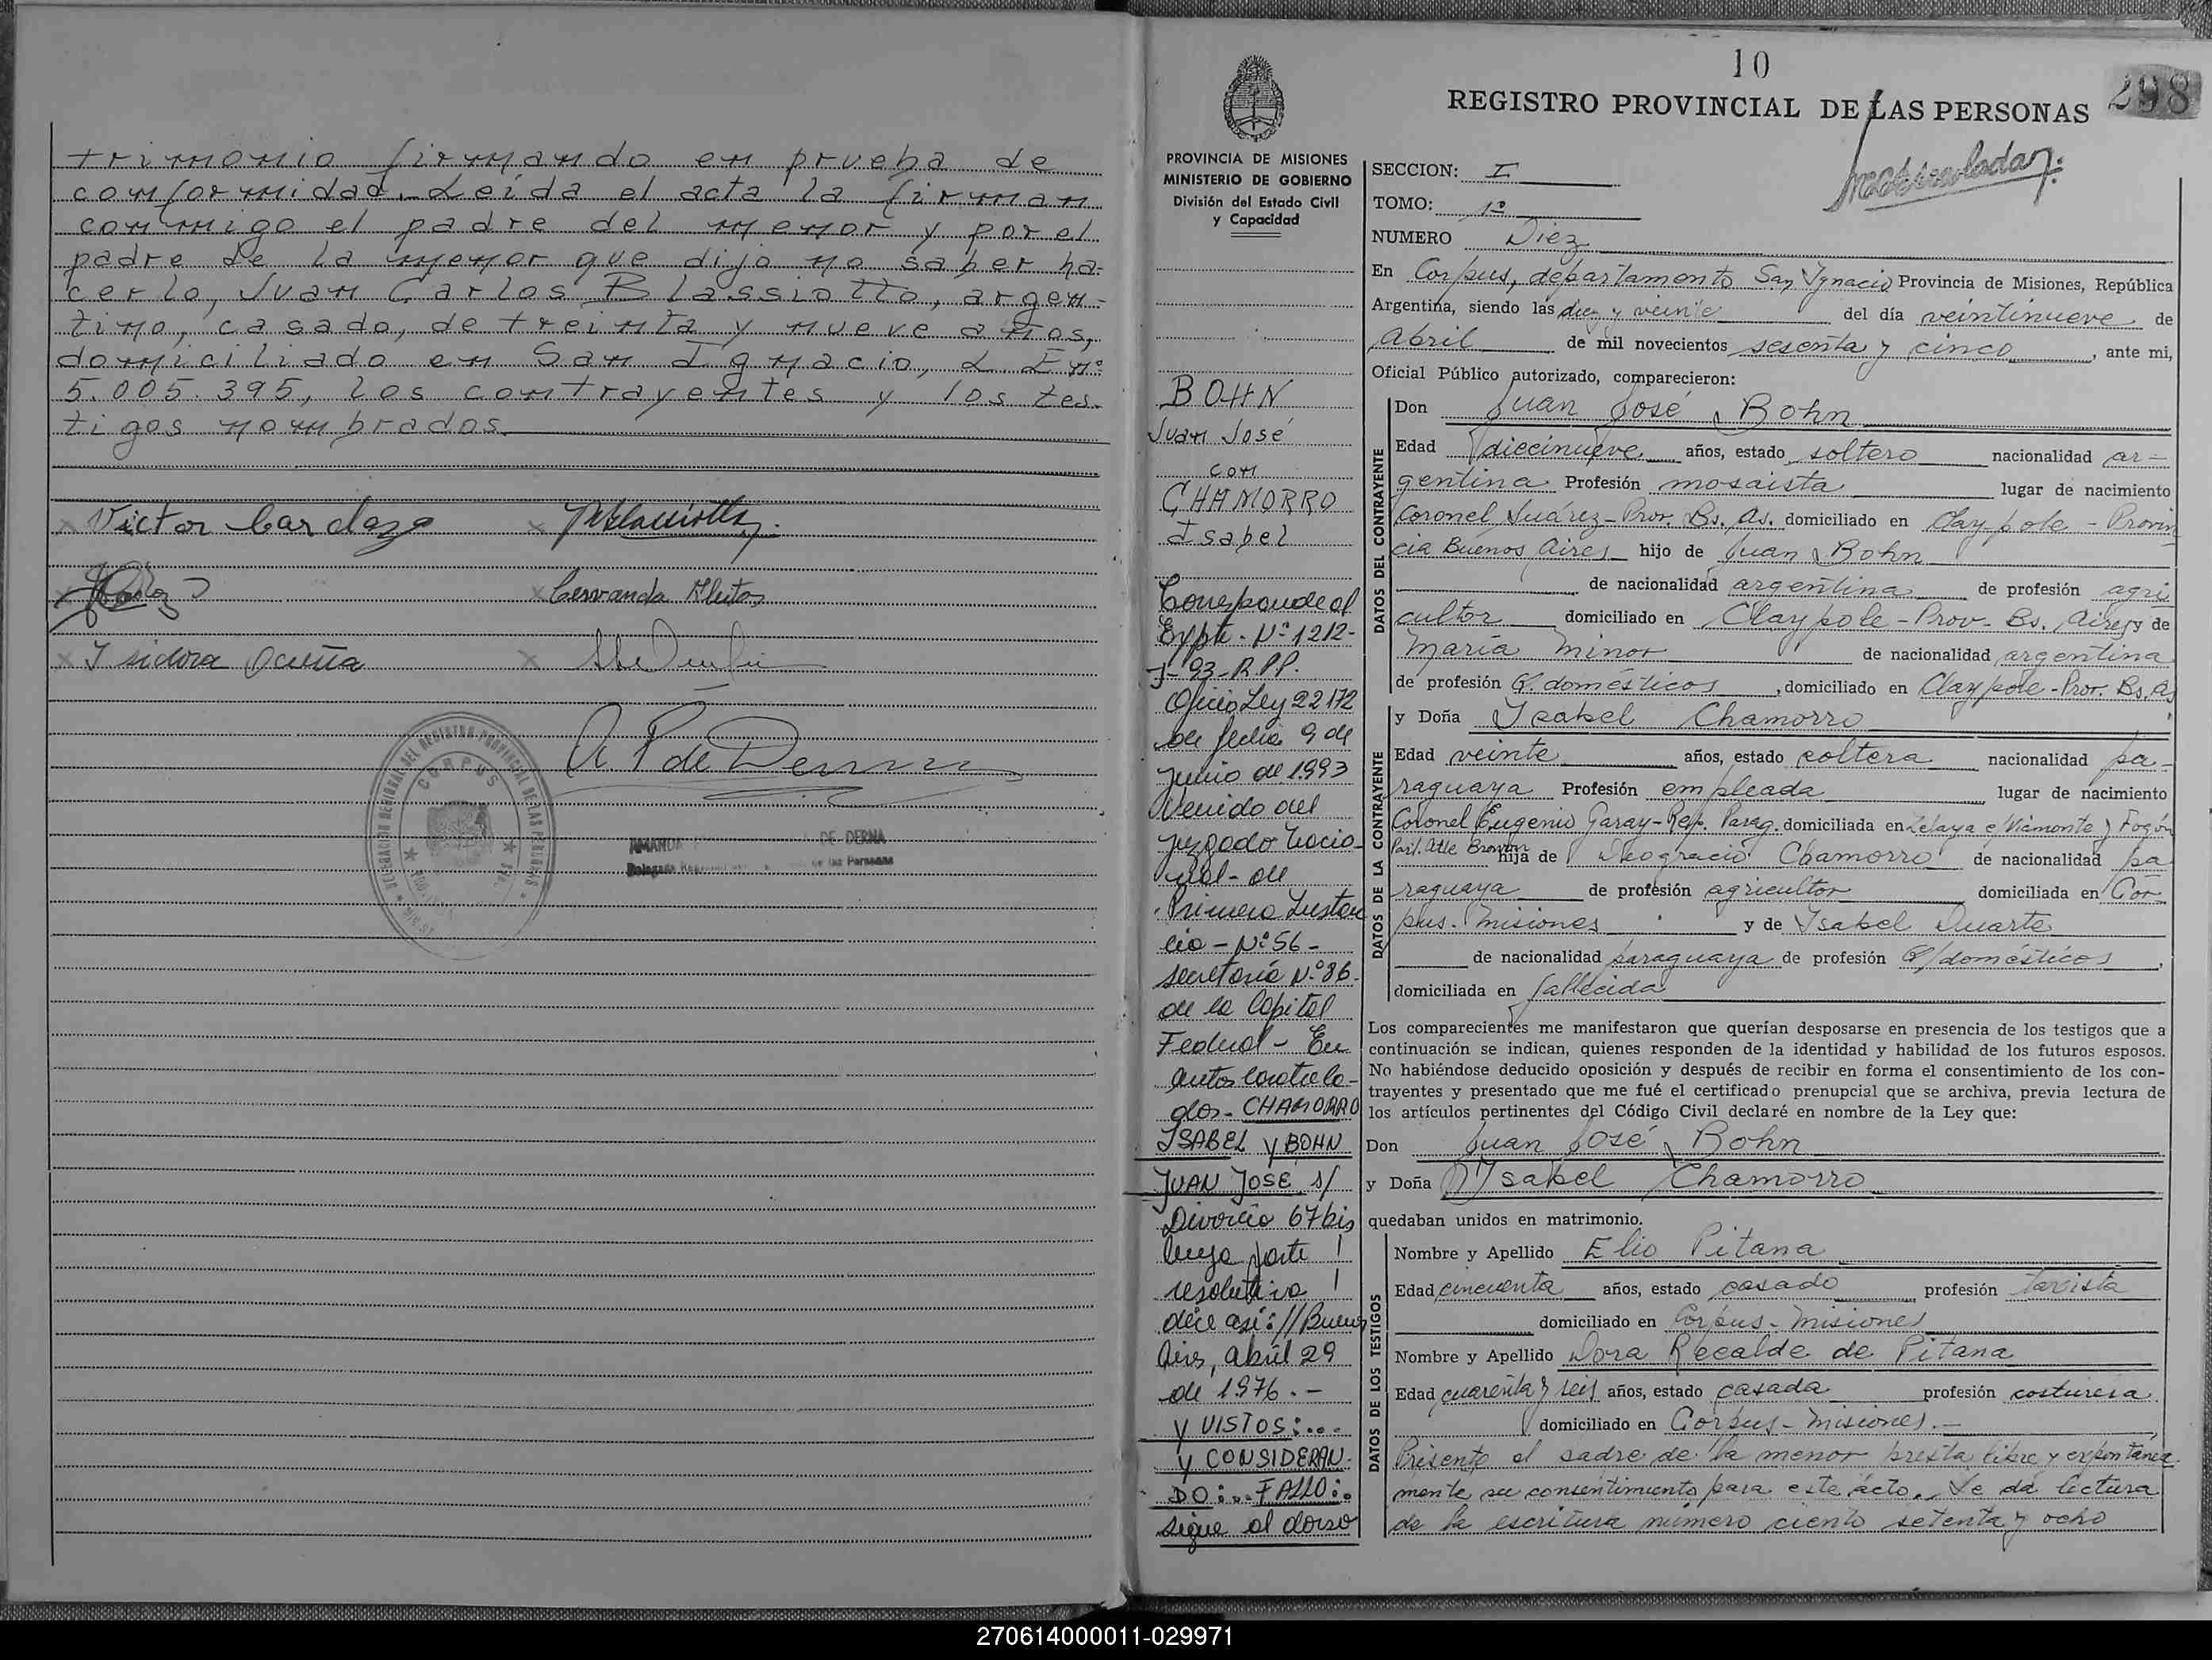 trimonio firmando en prueba de
conformidad. Leída el acta la firman
conmigo el padre del menor y por el
padre de la menor que dijo no saber ha-
cerlo, Juan Carlos Blassiotto, argen-
tino, casado, de treinta y nueve años,
domiciliado en San Ignacio, L. E. Nº
5.005.395, los contrayentes y los tes-
tigos nombrados.
Victor Cardozo
Isidora Acuña
CORPUS
AMANDA DE DERNA
10
298
REGISTRO PROVINCIAL DE LAS PERSONAS
PROVINCIA DE MISIONES
MINISTERIO DE GOBIERNO
División del Estado Civil
y Capacidad
BOHN
Juan José
con
CHAMORRO
Isabel
Corresponde al
Expte. Nº 1212-
J-93-R.P.P.
Oficio Ley 22172
de fecha 9 de
junio de 1993
venido del
Juzgado Nacio-
nal - de
Primera Instan
cia - Nº 56 -
secretaría Nº 86
de la Capital
Federal - En
autos caratula-
dos - CHAMORRO
ISABEL Y BOHN
JUAN JOSE s/
Divorcio 67 bis
cuya parte
resolutiva
dice así: // Buenos
Aires, abril 29
de 1976.-
Y VISTOS:...
Y CONSIDERAN-
DO:... FALLO:.
sigue al dorso
SECCION: I
TOMO: 1º
NUMERO Diez
En Corpus, departamento San Ygnacio Provincia de Misiones, República
Argentina, siendo las diez y veinte del día veintinueve de
Abril de mil novecientos sesenta y cinco, ante mi,
Oficial Público autorizado, comparecieron:
DATOS DEL CONTRAYENTE
Don Juan José Bohn
Edad diecinueve años, estado soltero nacionalidad ar-
gentina Profesión mosaista lugar de nacimiento
Coronel Suárez - Prov. Bs. As. domiciliado en Claypole - Provin
cia Buenos Aires hijo de Juan Bohn
de nacionalidad argentina de profesión agri
cultor domiciliado en Claypole - Prov. Bs. Aires y de
María Minor de nacionalidad argentina
de profesión Q. domésticos, domiciliado en Claypole - Prov. Bs. As
DATOS DE LA CONTRAYENTE
y Doña Ysabel Chamorro
Edad veinte años, estado soltera nacionalidad pa-
raguaya Profesión empleada lugar de nacimiento
Coronel Eugenio Garay - Rep. Parag. domiciliada en Zelaya e/ Viamonte y Fogón
Part. Alte Brown hija de Deogracio Chamorro de nacionalidad pa
raguaya de profesión agricultor domiciliada en Cor
pus. Misiones y de Ysabel Duarte
de nacionalidad paraguaya de profesión Q/domésticos,
domiciliada en fallecida
Los comparecientes me manifestaron que querían desposarse en presencia de los testigos que a
continuación se indican, quienes responden de la identidad y habilidad de los futuros esposos.
No habiéndose deducido oposición y después de recibir en forma el consentimiento de los con-
trayentes y presentado que me fué el certificado prenupcial que se archiva, previa lectura de
los artículos pertinentes del Código Civil declaré en nombre de la Ley que:
Don Juan José Bohn
y Doña Ysabel Chamorro
quedaban unidos en matrimonio.
DATOS DE LOS TESTIGOS
Nombre y Apellido Elio Pitana
Edad cincuenta años, estado casado profesión taxista
domiciliado en Corpus - Misiones
Nombre y Apellido Dora Recalde de Pitana
Edad cuarenta y seis años, estado casada profesión costurera
domiciliado en Corpus - Misiones.-
Presente el padre de la menor presta libre y expontánea
mente su consentimiento para este acto. Se da lectura
de la escritura número ciento setenta y ocho
270614000011-029971